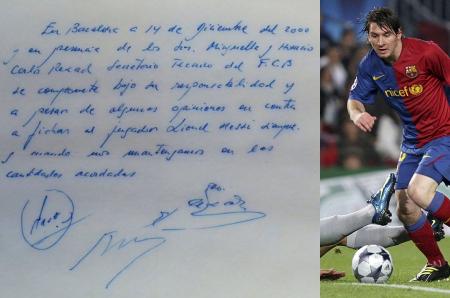 En Barcelona a 14 de diciembre del 2000
y en presencia de los Srs. Minguella y Horacio
Carlos Rexach Secretario Técnico del F.C.B
se compromete bajo su responsabilidad y
a pesar de algunas opiniones en contra
a fichar al jugador Lionel Messi siempre
y cuando nos mantengamos en las
cantidades acordadas
unicef